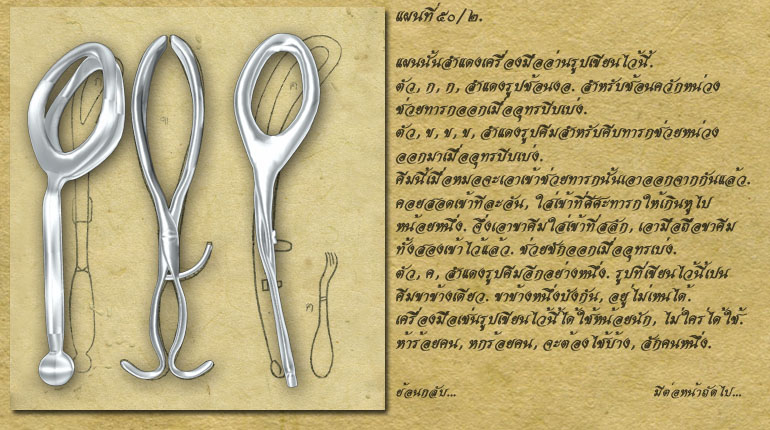 แผนที่ ๕๐/๒.
แผนนั้นสำแดงเครื่องมืออ่านรูปเขียนไว้นี้.
ตัว, ก, ก, สำแดงรูปช้อนงอ. สำหรับช้อนควักหน่วง
ช่วยทารกออกเมื่ออุทรบีบเบ่ง.
ตัว, ข, ข, ข, สำแดงรูปคีมสำหรับคีบทารกช่วยหน่วง
ออกมาเมื่ออุทรบีบเบ่ง.
คีมนี้เมื่อหมอจะเอาเข้าช่วยทารกนั้นเอาออกจากกันแล้ว.
คอยสอดเข้าทีละอัน, ใส่เข้าที่ศีศะทารกให้เกินหูไป
หน่อยหนึ่ง. จึ่งเอาขาคีมใส่เข้าที่สลัก, เอามือถือขาคีม
ทั้งสองเข้าไว้แล้ว. ช่วยชักออกเมื่ออุทรเบ่ง.
ตัว, ค, สำแดงรูปคีมอีกอย่างหนึ่ง. รูปที่เขียนไว้นี้เปน
คีมขาข้างเดียว. ขาข้างหนึ่งบังกัน, อยู่ไม่เหนได้.
เครื่องมือเช่นรูปเขียนไว้นี้ได้ใช้หน้อยนัก, ไม่ใคร่ได้ใช้.
ห้าร้อยคน, หกร้อยคน, จะต้องใช้บ้าง, สักคนหนึ่ง.
ย้อนกลับ...
มีต่อหน้าถัดไป...